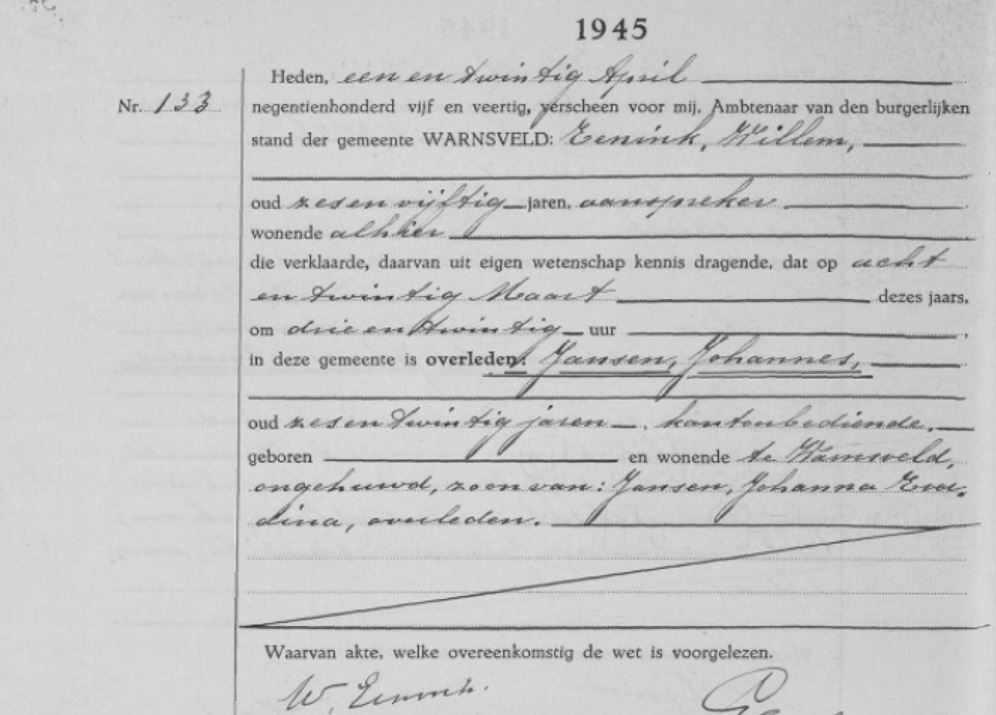 1945
Heden, een en twintig April
Nr. 133 negentienhonderd vijf en veertig, verscheen voor mij, Ambtenaar van den burgerlijken
stand der gemeente WARNSVELD: Eenink, Willem,
oud zesenvijftig jaren, aanspreker
wonende alhier
die verklaarde, daarvan uit eigen wetenschap kennis dragende, dat op acht
en twintig Maart dezes jaars,
om drie en twintig uur
in deze gemeente is overleden: Jansen, Johannes,
oud zesentwintig jaren, kantoorbediende,
geboren en wonende te Warnsveld,
ongehuwd, zoon van: Jansen, Johanna Ever-
dina, overleden.
Waarvan akte, welke overeenkomstig de wet is voorgelezen.
W. Eenink.